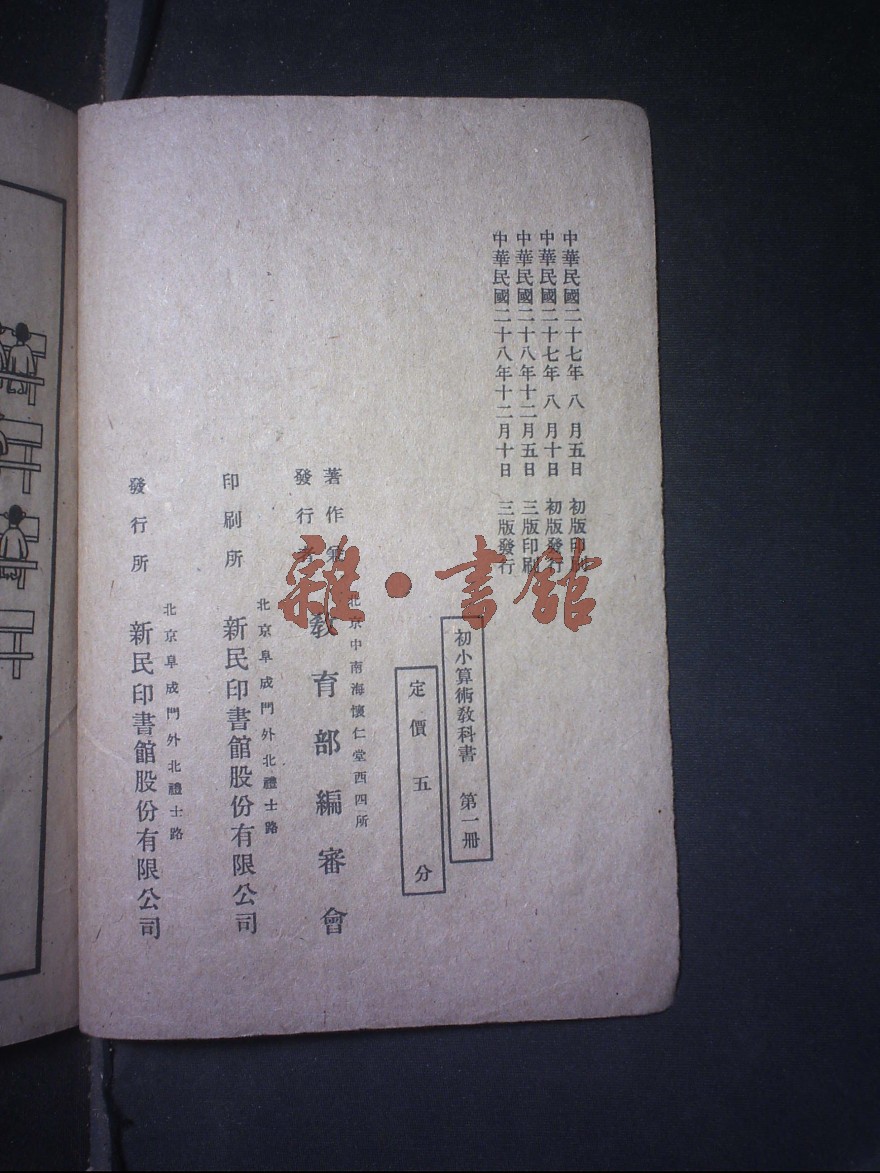 中華民國二十七年 八 月五日 初版印刷
中華民國二十七年 八 月十日 初版發行
中華民國二十八年十二月五日 三版印刷
中華民國二十八年十二月十日 三版發行
初小算術教科書 第一冊
定價五分
北京中南海懷仁堂西四所
著作兼
發行者
教育部編審會
北京阜成門外北禮士路
印刷所 新民印書館股份有限公司
北京阜成門外北禮士路
發行所 新民印書館股份有限公司
雜·書館